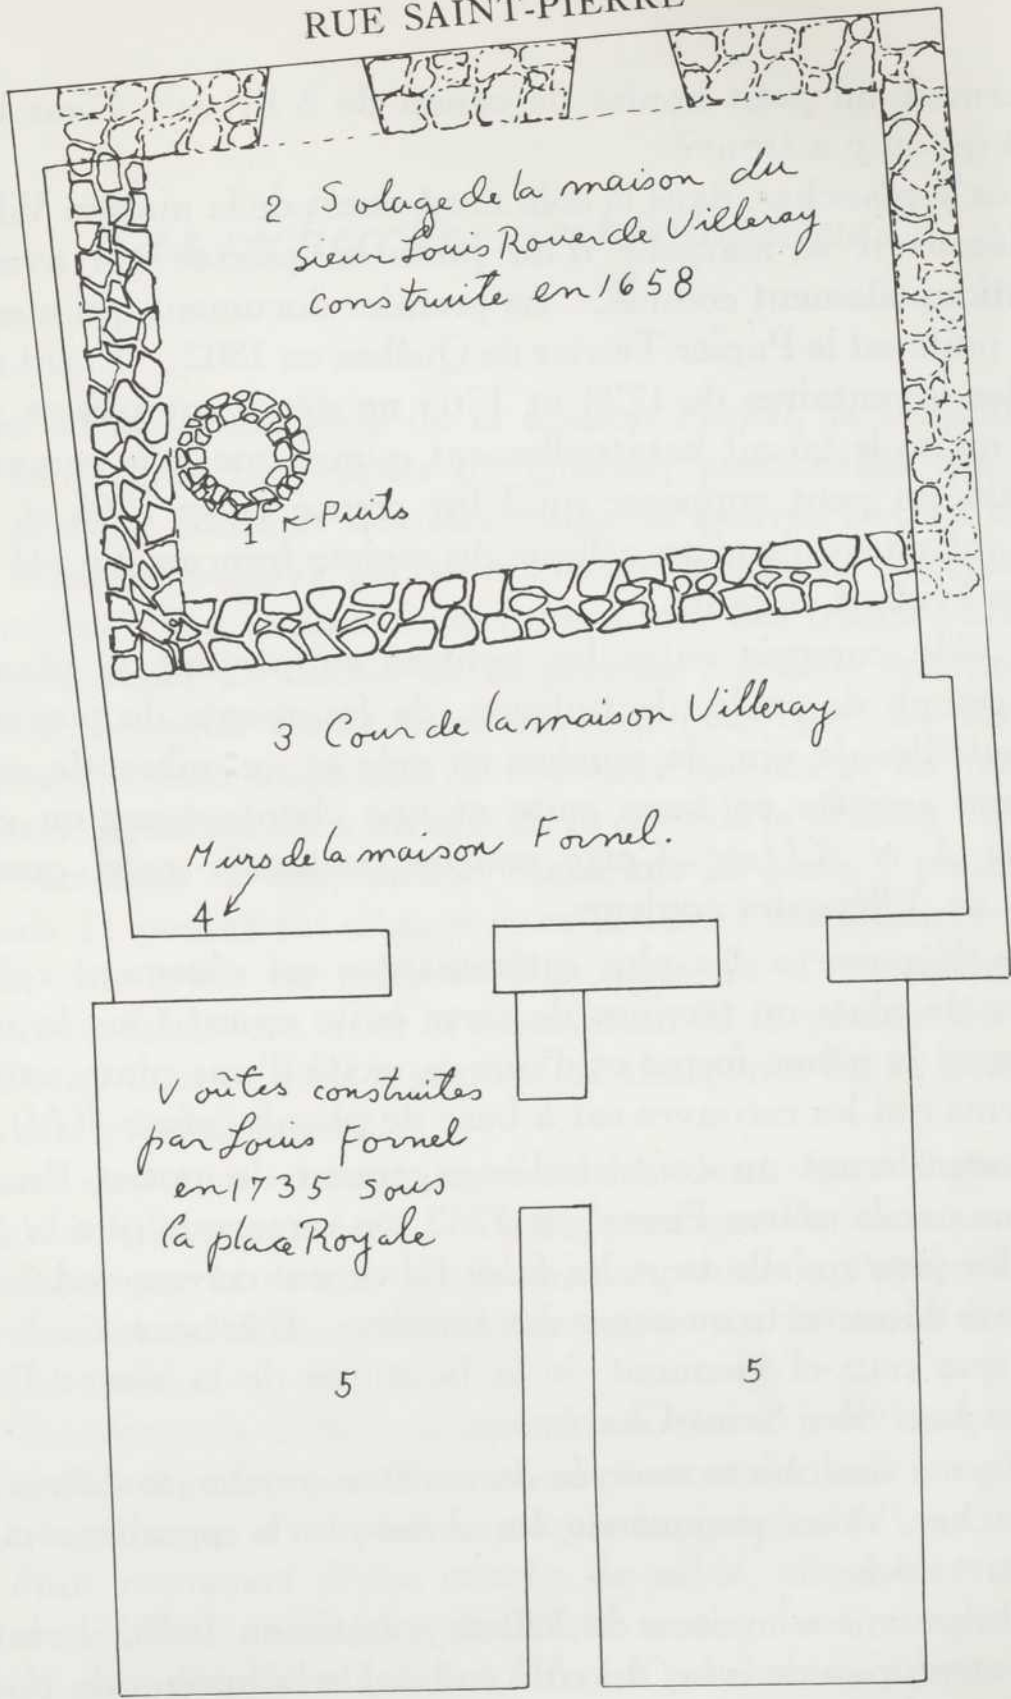 RUE SAINT-PIERRE
2 Solage de la maison du
sieur Louis Rouer de Villeray
construite en 1658
1 ← Puits
3 Cour de la maison Villeray
Murs de la maison Fornel.
4
Voûtes construites
par Louis Fornel
en 1735 sous
la place Royale
5 5